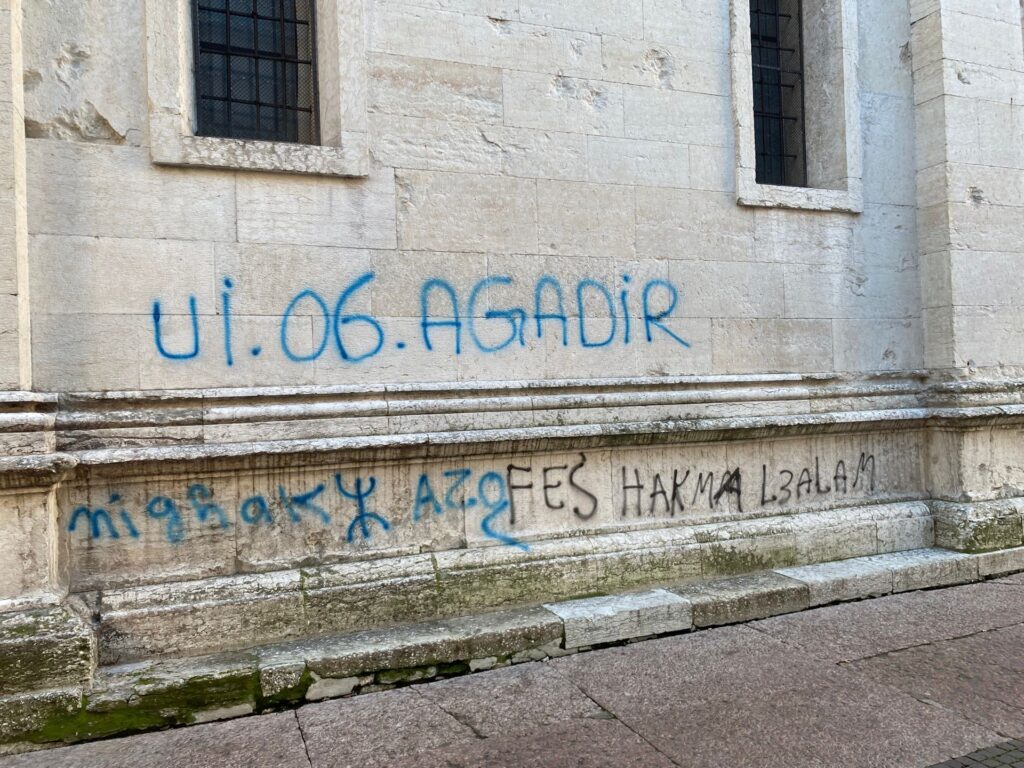 Ui.06.AGADiR
nighak ⵣ AZQ FES HAKMA L3ALAM